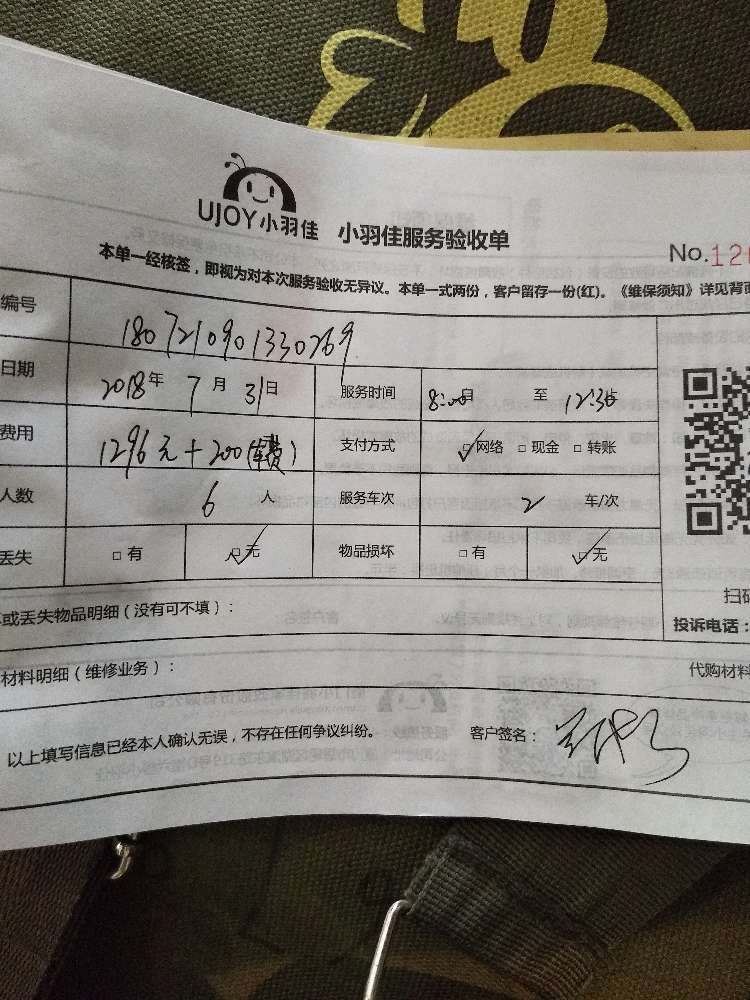 UJOY小羽佳 小羽佳服务验收单
No.120
本单一经核签，即视为对本次服务验收无异议。本单一式两份，客户留存一份(红)。《维保须知》详见背面
编号 1807210901330269
日期 2018年 7月 31日 服务时间 8:00 自 至 12:30 止
费用 1296元+200(车费) 支付方式 ☑网络 □现金 □转账
人数 6 人 服务车次 2 车/次
丢失 □有 ☑无 物品损坏 □有 ☑无
扫码
或丢失物品明细（没有可不填）：
投诉电话：
材料明细（维修业务）：
代购材料
以上填写信息已经本人确认无误，不存在任何争议纠纷。 客户签名：